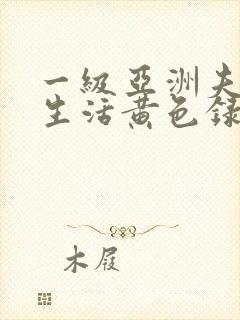 一級亞洲夫
生活黄色録
木屐